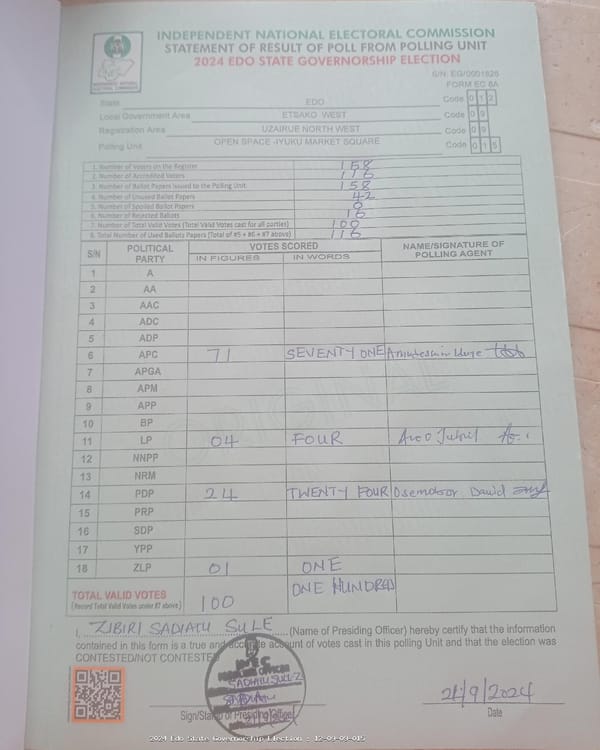 INDEPENDENT NATIONAL ELECTORAL COMMISSION
STATEMENT OF RESULT OF POLL FROM POLLING UNIT
2024 EDO STATE GOVERNORSHIP ELECTION
S/N: EG/0001826
FORM EC 8A
INDEPENDENT NATIONAL ELECTORAL COMMISSION
State EDO Code 0 1 2
Local Government Area ETSAKO WEST Code 0 9
Registration Area UZAIRUE NORTH WEST Code 0 9
Polling Unit OPEN SPACE -IYUKU MARKET SQUARE Code 0 1 5
1. Number of Voters on the Register 158
2. Number of Accredited Voters 116
3. Number of Ballot Papers Issued to the Polling Unit 158
4. Number of Unused Ballot Papers 42
5. Number of Spoiled Ballot Papers 0
6. Number of Rejected Ballots 16
7. Number of Total Valid Votes (Total Valid Votes cast for all parties) 100
8. Total Number of Used Ballots Papers (Total of #5 + #6 + #7 above) 116
S/N POLITICAL PARTY VOTES SCORED NAME/SIGNATURE OF POLLING AGENT
IN FIGURES IN WORDS
1 A
2 AA
3 AAC
4 ADC
5 ADP
6 APC 71 SEVENTY ONE
7 APGA
8 APM
9 APP
10 BP
11 LP 04 FOUR
12 NNPP
13 NRM
14 PDP 24 TWENTY FOUR David
15 PRP
16 SDP
17 YPP
18 ZLP 01 ONE
TOTAL VALID VOTES 100 ONE HUNDRED
(Record Total Valid Votes under #7 above)
I, ZIBIRI SADIATU SULE (Name of Presiding Officer) hereby certify that the information
contained in this form is a true and accurate account of votes cast in this polling Unit and that the election was
CONTESTED/NOT CONTESTED
PRESIDING OFFICER
21/9/2024
Sign/Stamp of Presiding Officer Date
2024 Edo State Governorship Election - 12-09-09-015